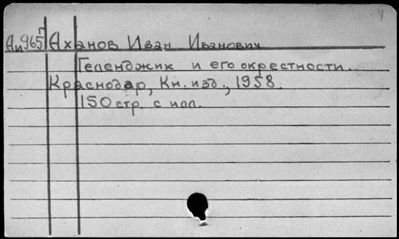 Ан965г Аханов Иван Иванович
Геленджик и его окрестности.
Краснодар, Кн. изд., 1958.
150 стр. с илл.